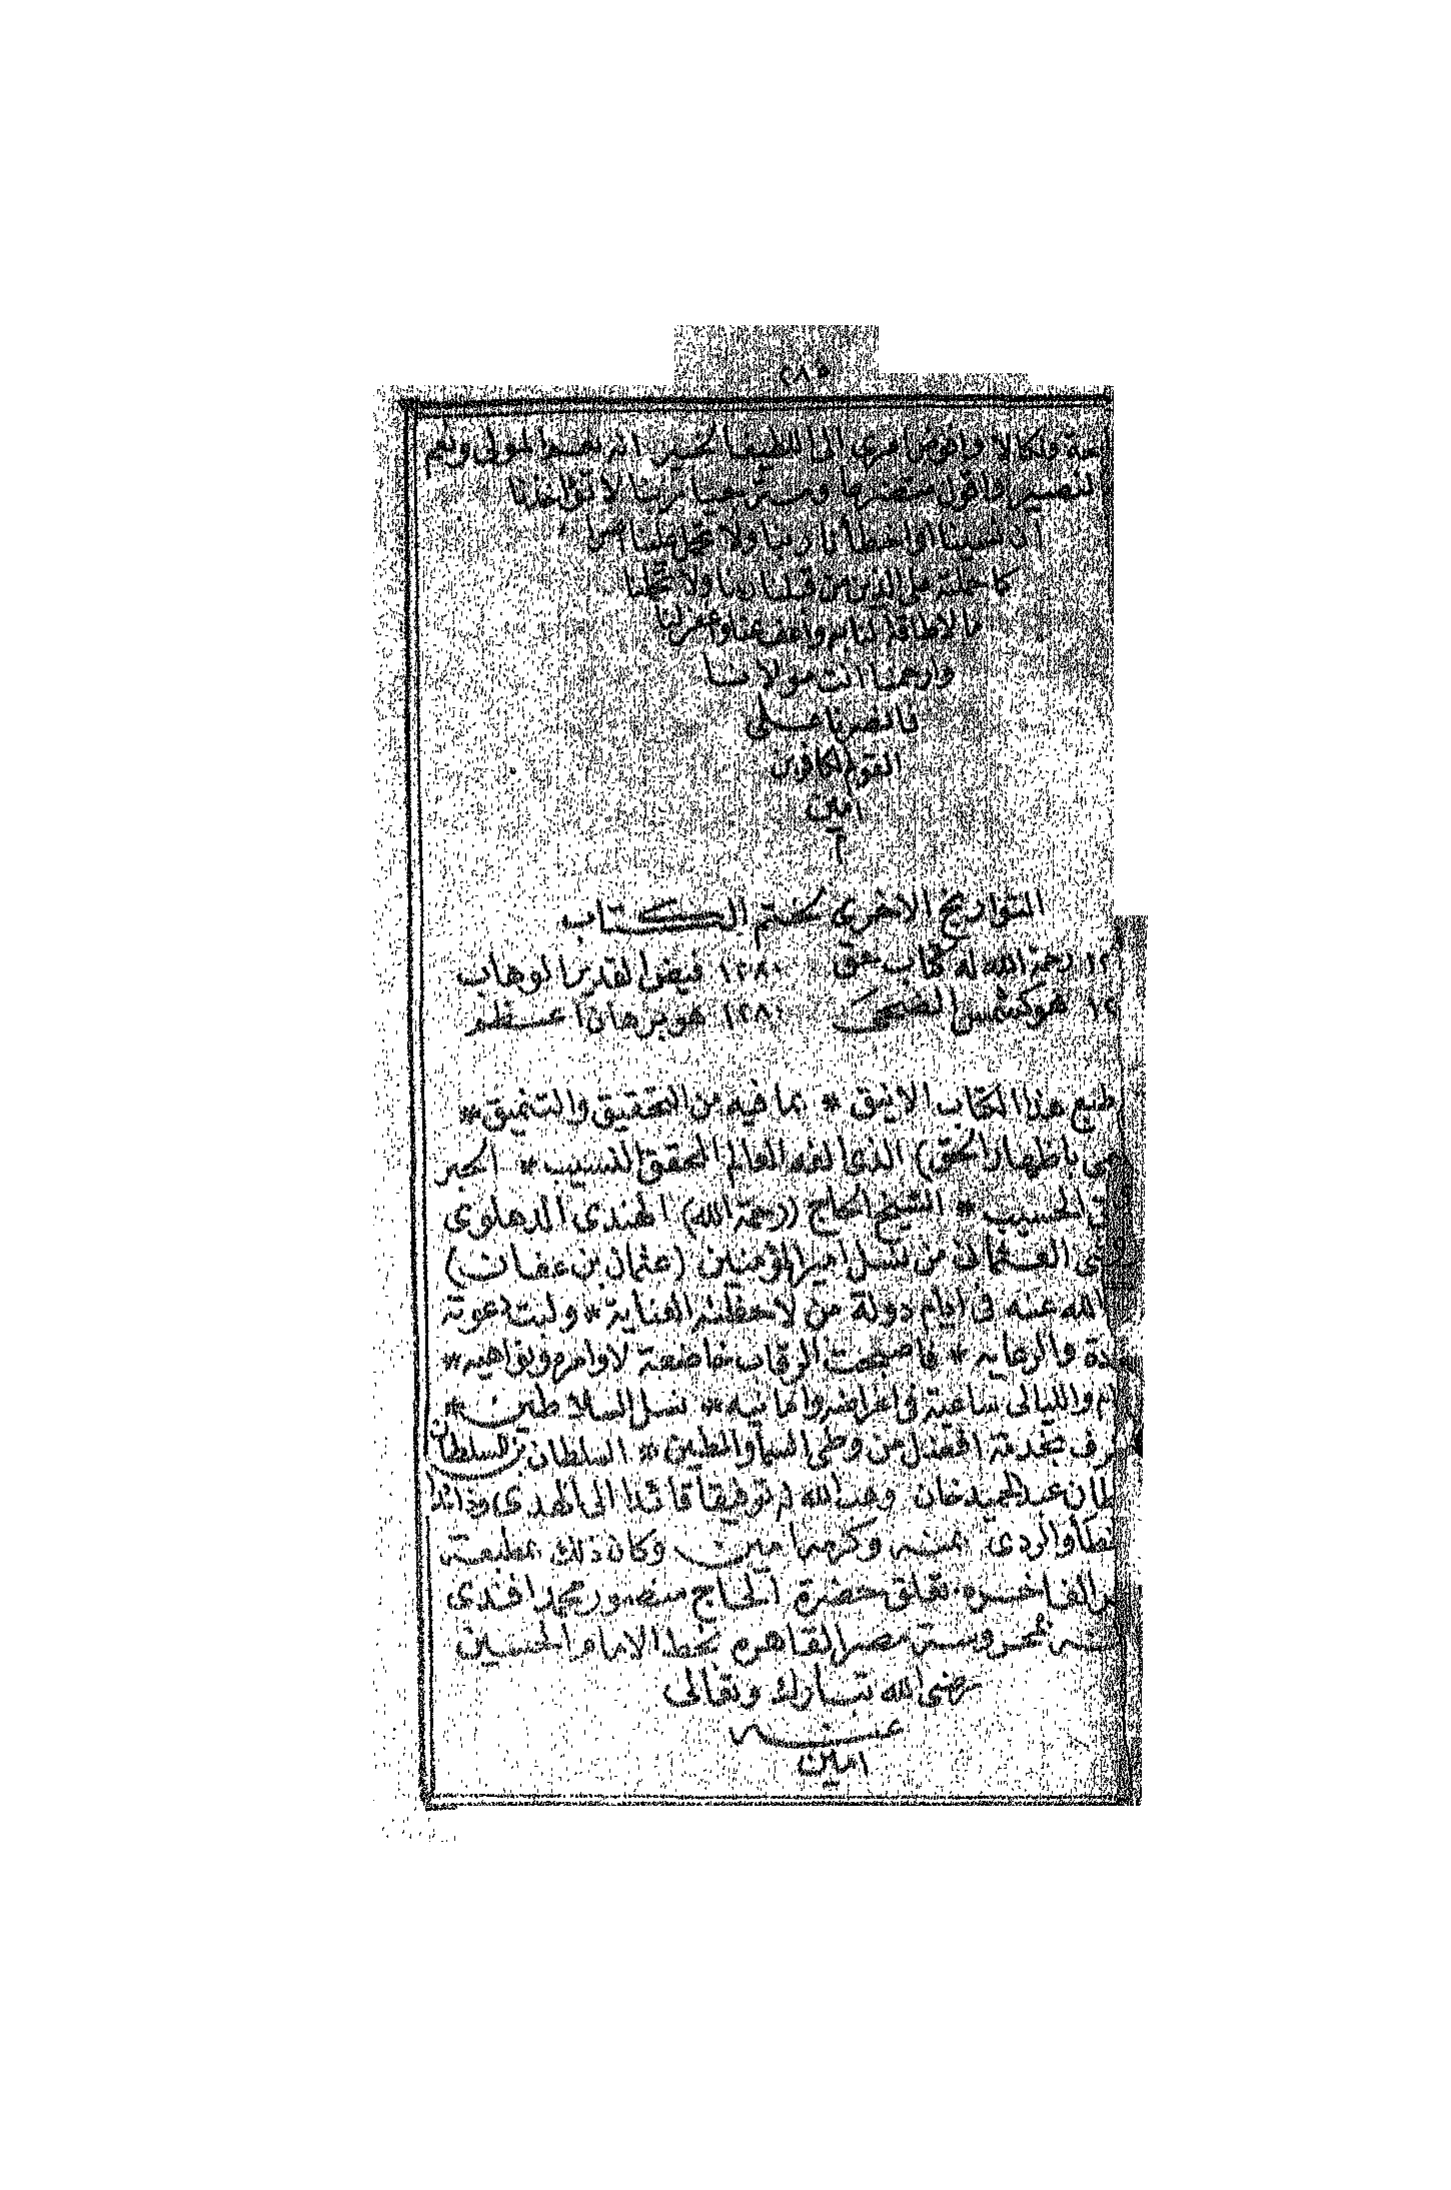 ٢٨٥
ونكالا وافوض امرى الى اللطيف الخبير انه نعم المولى ونعم
النصير واقول متضرعا لا تؤاخذنا
ان نسينا او اخطأنا ربنا ولا تحمل علينا اصرا
كما حملته على الذين من قبلنا ربنا ولا تحملنا
ما لا طاقة لنا به واعف عنا واغفر لنا
وارحمنا انت مولانا
فانصرنا على
القوم الكافرين
امين
م
التواريخ الاخرى لختم الكتاب
١٢ رحمة الله له كتاب حق ١٢٨٠ فيض القدير الوهاب
١٢ هو كشمس الضحى ١٢٨٠ هو برهان اعظم
طبع هذا الكتاب الانيق * بما فيه من التحقيق والتنميق *
مى باظهار الحق) الذى الفه العالم المحقق النسيب * الحبر
ق الحسيب * الشيخ الحاج (رحمة الله) الهندى الدهلوى
ى العثمانى من نسل امير المؤمنين (عثمان بن عفان)
الله عنه فى ايام دولة من لاحظته العناية * ولبت دعوته
دة والرعايه * فاصبحت الرقاب خاضعة لاوامره ونواهيه *
م والليالى ساعية فى اغراضه وامانيه * نسل السلاطين *
رف بخدمة افضل من وطى السما والطين * السلطان بن السلطان
طان عبد المجيد خان وهب الله له توفيقا قائدا الى الهدى وذائدا
خطأ والردى بمنه وكرمه امين وكان ذلك بمطبعته
ر الفاخره تعلق حضرة الحاج منصور محمد افندى
بمحروسة مصر القاهره بخط الامام الحسين
رضى الله تبارك وتعالى
عنه
امين